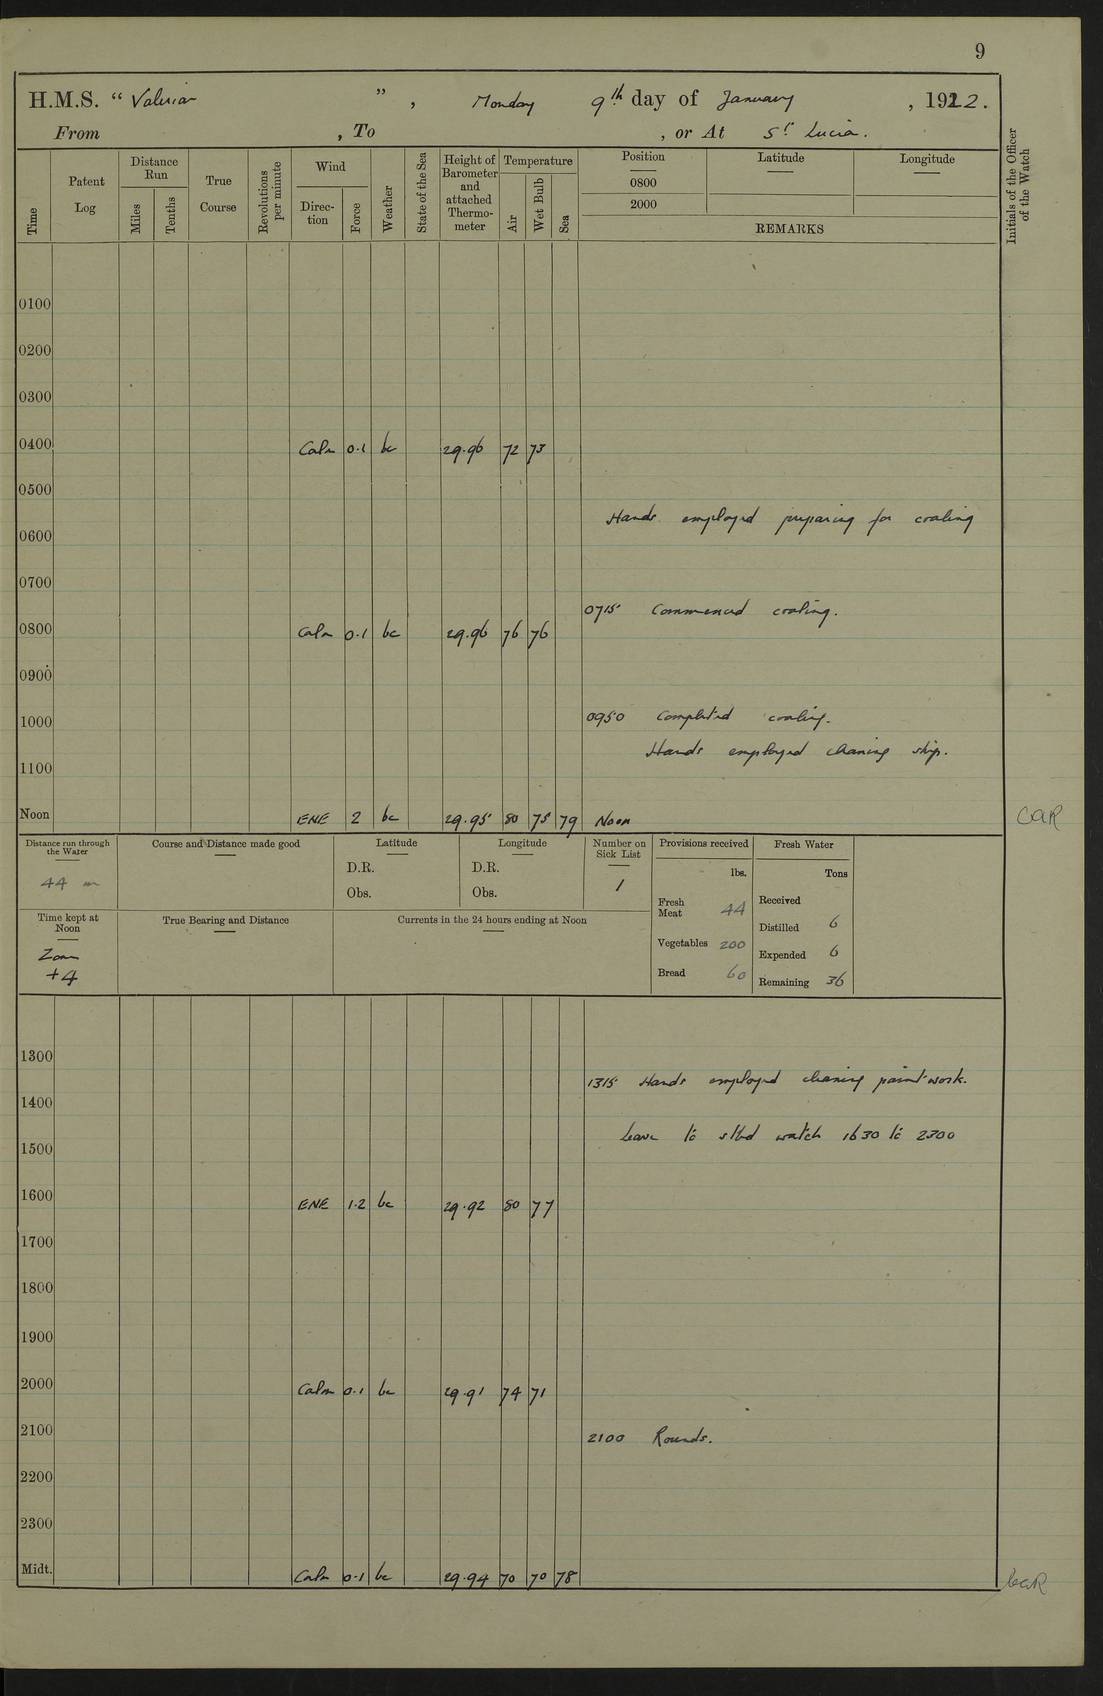 9
H.M.S. “ Valerian ” , Monday 9th day of January , 1922.
From , To , or At St Lucia.
Time
Patent Log
Distance Run
Miles
Tenths
True Course
Revolutions per minute
Wind
Direc-tion
Force
Weather
State of the Sea
Height of Barometer and attached Thermo-meter
Temperature
Air
Wet Bulb
Sea
Position Latitude Longitude
0800
2000
REMARKS
Initials of the Officer of the Watch
0100
0200
0300
0400 Calm 0.1 bc 29.96 72 73
0500
Hands employed preparing for coaling
0600
0700
0715 Commenced coaling.
0800 Calm 0.1 bc 29.96 76 76
0900
1000 0950 Completed coaling.
Hands employed cleaning ship.
1100
Noon ENE 2 bc 29.95 80 75 79 Noon CAR
Distance run through the Water
44 m
Course and Distance made good
Latitude
D.R.
Obs.
Longitude
D.R.
Obs.
Number on Sick List
1
Provisions received
lbs.
Fresh Meat 44
Vegetables 200
Bread 60
Fresh Water
Tons
Received
Distilled 6
Expended 6
Remaining 36
Time kept at Noon
Zone
+4
True Bearing and Distance
Currents in the 24 hours ending at Noon
1300
1315 Hands employed cleaning paintwork.
1400
Leave to stbd watch 1630 to 2300
1500
1600 ENE 1.2 bc 29.92 80 77
1700
1800
1900
2000 Calm 0.1 bc 29.91 74 71
2100 2100 Rounds.
2200
2300
Midt. Calm 0.1 bc 29.94 70 70 78